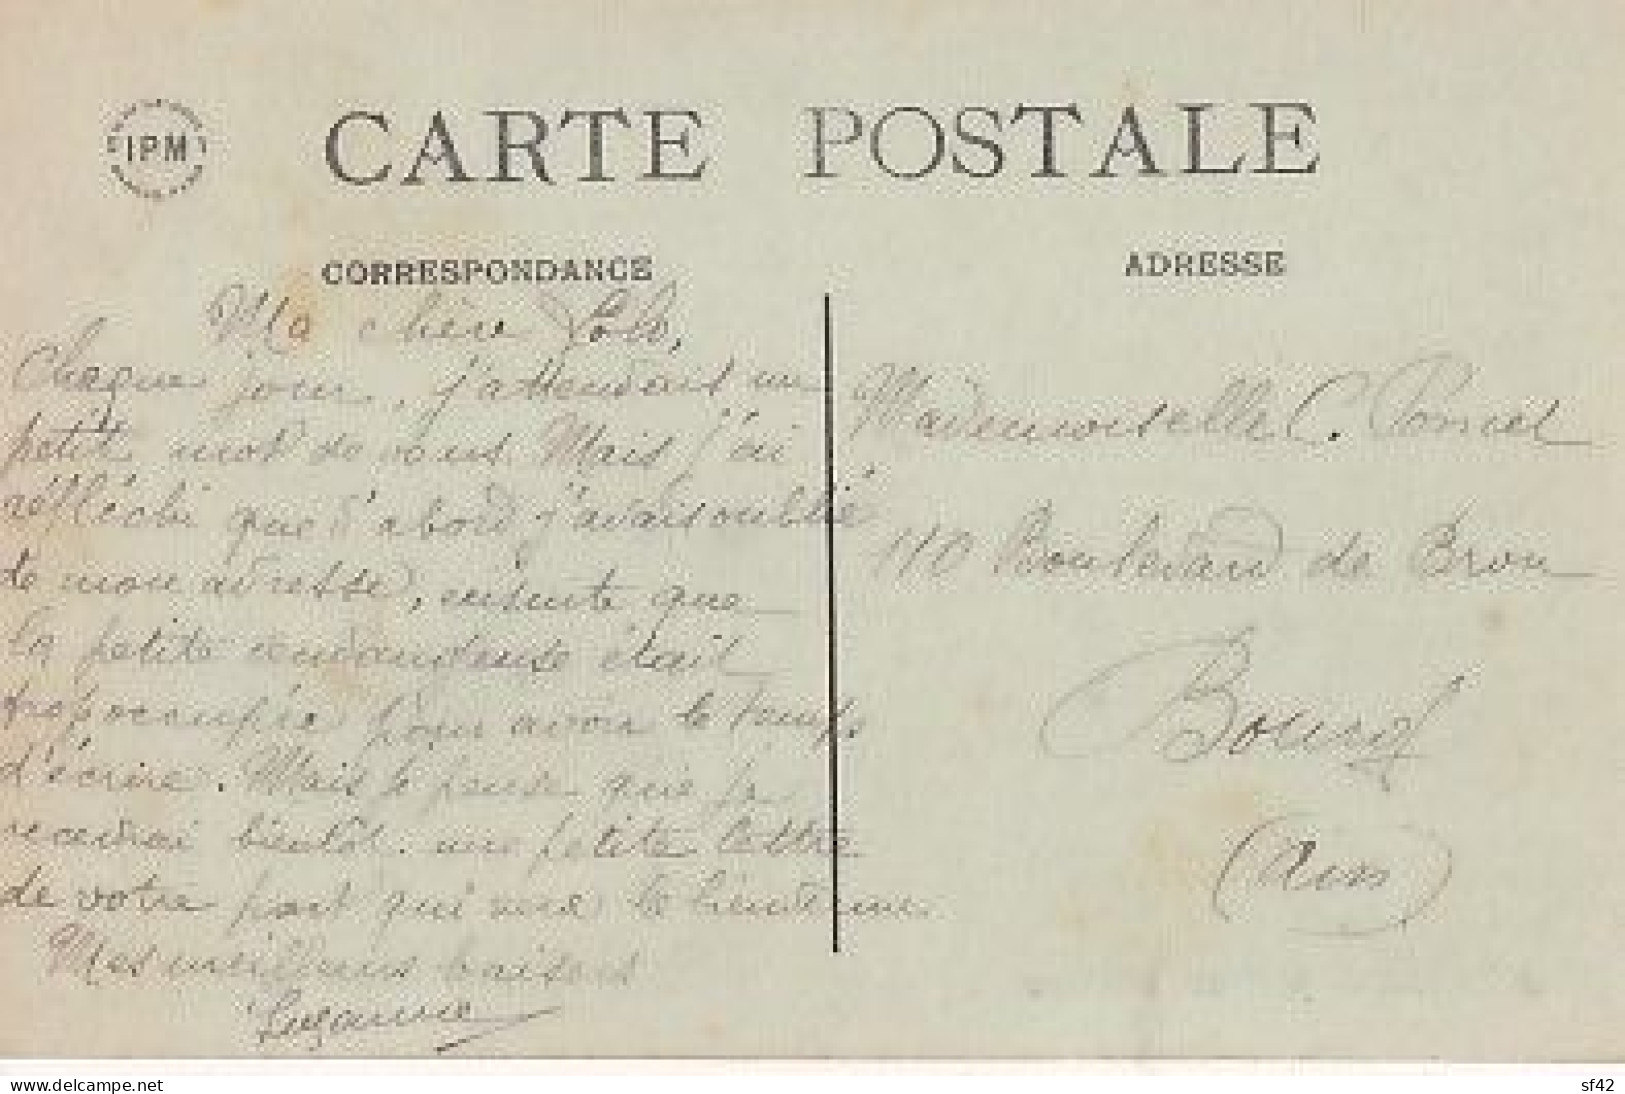 IPM
CARTE POSTALE
CORRESPONDANCE
Ma chère Lolo,
Chaque jour, j'attendais un
petit mot de vous. Mais j'ai
réfléchi que d'abord j'avais oublié
de mon adresse, ensuite que
la petite était
trop occupée pour avoir le temps
d'écrire. Mais je pense que je
recevrai bientôt une petite lettre
de votre part qui me
Mes meilleurs baisers
Suzanne
ADRESSE
Mademoiselle C. Poncet
110 Boulevard de Brou
Bourg
(Ain)
delcampe.net
sf42